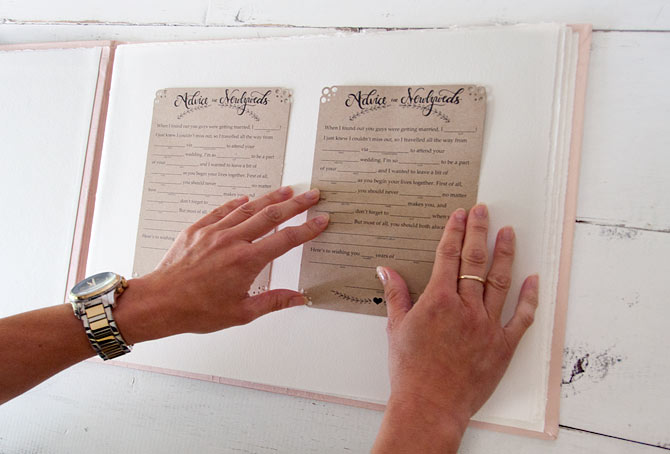 Advice for Newlyweds
When I found out you guys were getting married, I ______,
I just knew I couldn't miss out, so I travelled all the way from
______ via ______ to attend your
______ wedding. I'm so ______ to be a part
of your ______, and I wanted to leave a bit of
______ as you begin your lives together. First of all,
______ you should never ______ no matter
how ______ makes you, and
______ don't forget to
______. But most of all,
Here's to wishing
Advice for Newlyweds
When I found out you guys were getting married, I ______,
I just knew I couldn't miss out, so I travelled all the way from
______ via ______ to attend your
______ wedding. I'm so ______ to be a part
of your ______, and I wanted to leave a bit of
______ as you begin your lives together. First of all,
______ you should never ______ no matter
______ makes you, and
______ don't forget to ______ when
______. But most of all, you should both always
Here's to wishing you ______ years of ______